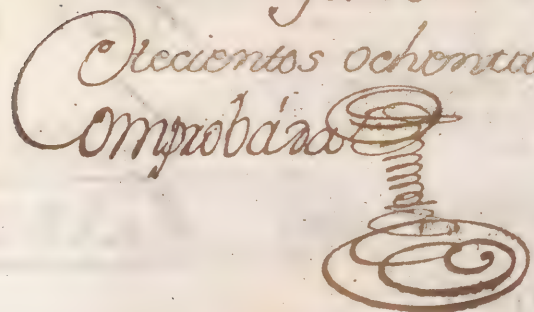 Setecientos ochenta
Comprobáda